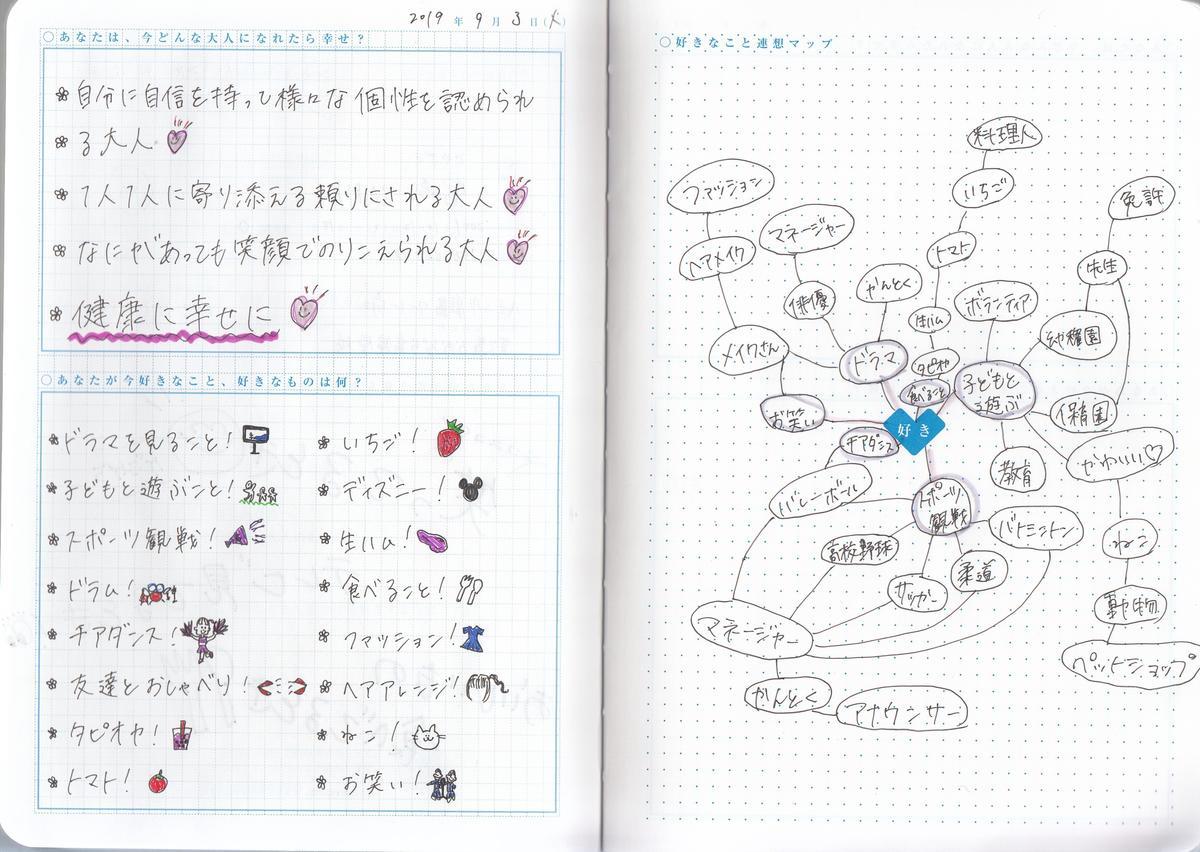 2019年9月3日(火)
○あなたは、今どんな大人になれたら幸せ?
自分に自信を持って様々な個性を認められ
る大人
1人1人に寄り添える頼りにされる大人
なにがあっても笑顔でのりこえられる大人
健康に幸せに
○あなたが今好きなこと、好きなものは何?
ドラマを見ること!
子どもと遊ぶこと!
スポーツ観戦!
ドラム!
チアダンス!
友達とおしゃべり!
タピオカ!
トマト!
いちご!
ディズニー!
生ハム!
食べること!
ファッション!
ヘアアレンジ!
ねこ!
お笑い!
○好きなこと連想マップ
料理人
いちご
トマト
生ハム
タピオカ
食べること
ファッション
ヘアメイク
メイクさん
マネージャー
俳優
かんとく
ドラマ
お笑い
好き
チアダンス
ボランティア
子どもと
遊ぶ
免許
先生
幼稚園
保育園
教育
かわいい♡
ねこ
動物
ペットショップ
スポーツ
観戦
バレーボール
高校野球
サッカー
柔道
バトミントン
マネージャー
かんとく
アナウンサー